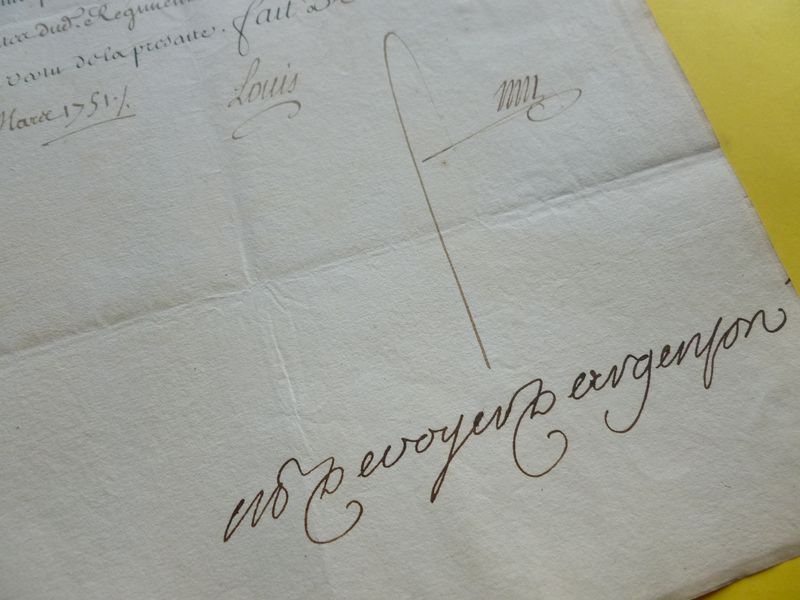 dud. Regiment
vertu de la presante. fait
Mars 1751 ./.
Louis
MR De voyer D argenson